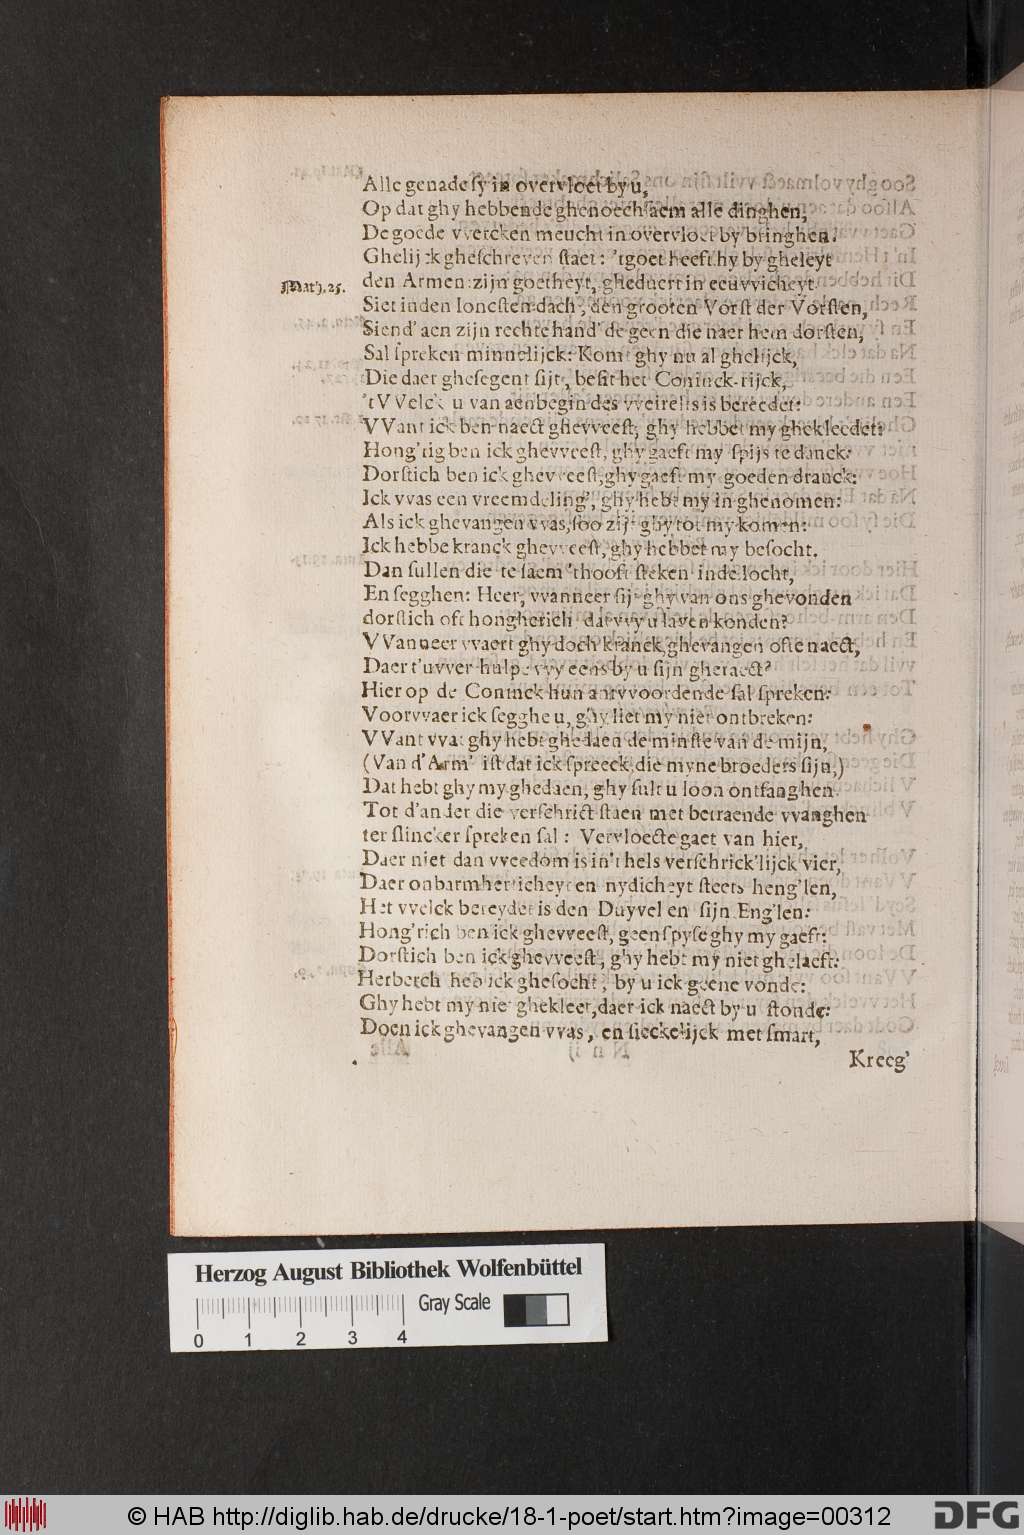 Alle genade sy in overvloet by u,
Op dat ghy hebbende ghenoech saem alle dinghen,
De goede vvercken meucht in overvloet by bringhen.
Ghelijck gheschreven staet: 'tgoet heeft hy by gheleyt
Matth. 25. den Armen: zijn goetheyt, gheduert in eeuvvicheyt.
Siet inden Ioncsten dach, den grooten Vorst der Vorsten,
Siend' aen zijn rechte hand' de geen die naer hem dorsten,
Sal spreken minnelijck: Komt ghy nu al ghelijck,
Die daer ghesegent sijt, besit het Coninck-rijck,
'tVVelck u van aenbegin des vveirelts is bereedet:
VVant ick ben naect ghevveest, ghy hebbet my ghekleedet:
Hong'rig ben ick ghevveest, ghy gaeft my spijs te danck:
Dorstich ben ick ghevveest, ghy gaeft my goeden dranck:
Ick vvas een vreemdeling', ghy hebt my in ghenomen:
Als ick ghevangen vvas, soo zijt ghy tot my komen:
Ick hebbe kranck ghevveest, ghy hebbet my besocht.
Dan sullen die te saem 'thooft steken inde locht,
En segghen: Heer, vvanneer sijt ghy van ons ghevonden
dorstich oft hongherich dat vvy u laven konden?
VVanneer vvaert ghy doch kranck, ghevangen ofte naect,
Daer t'uvver hulpe vvy eens by u sijn gheraect?
Hier op de Coninck hun antvvoordende sal spreken:
Voorvvaer ick segghe u, ghy liet my niet ontbreken:
VVant vvat ghy hebt ghedaen de minste van de mijn,
(Van d'Arm' ist dat ick spreeck, die myne broeders sijn,)
Dat hebt ghy my ghedaen, ghy sult u loon ontfanghen.
Tot d'ander die verschrict staen met betraende vvanghen
ter slincker spreken sal: Vervloecte gaet van hier,
Daer niet dan vveedom is in't hels verschrick'lijck vier,
Daer onbarmherticheyt en nydicheyt steets heng'len,
Het vvelck bereydet is den Duyvel en sijn Eng'len:
Hong'rich ben ick ghevveest, geen spyse ghy my gaeft:
Dorstich ben ick ghevveest, ghy hebt my niet ghelaeft:
Herberch heb ick ghesocht, by u ick geene vonde:
Ghy hebt my niet ghekleet, daer ick naect by u stonde:
Doen ick ghevangen vvas, en sieckelijck met smart,
Kreeg'
Herzog August Bibliothek Wolfenbüttel
Gray Scale
0 1 2 3 4
© HAB http://diglib.hab.de/drucke/18-1-poet/start.htm?image=00312
DFG